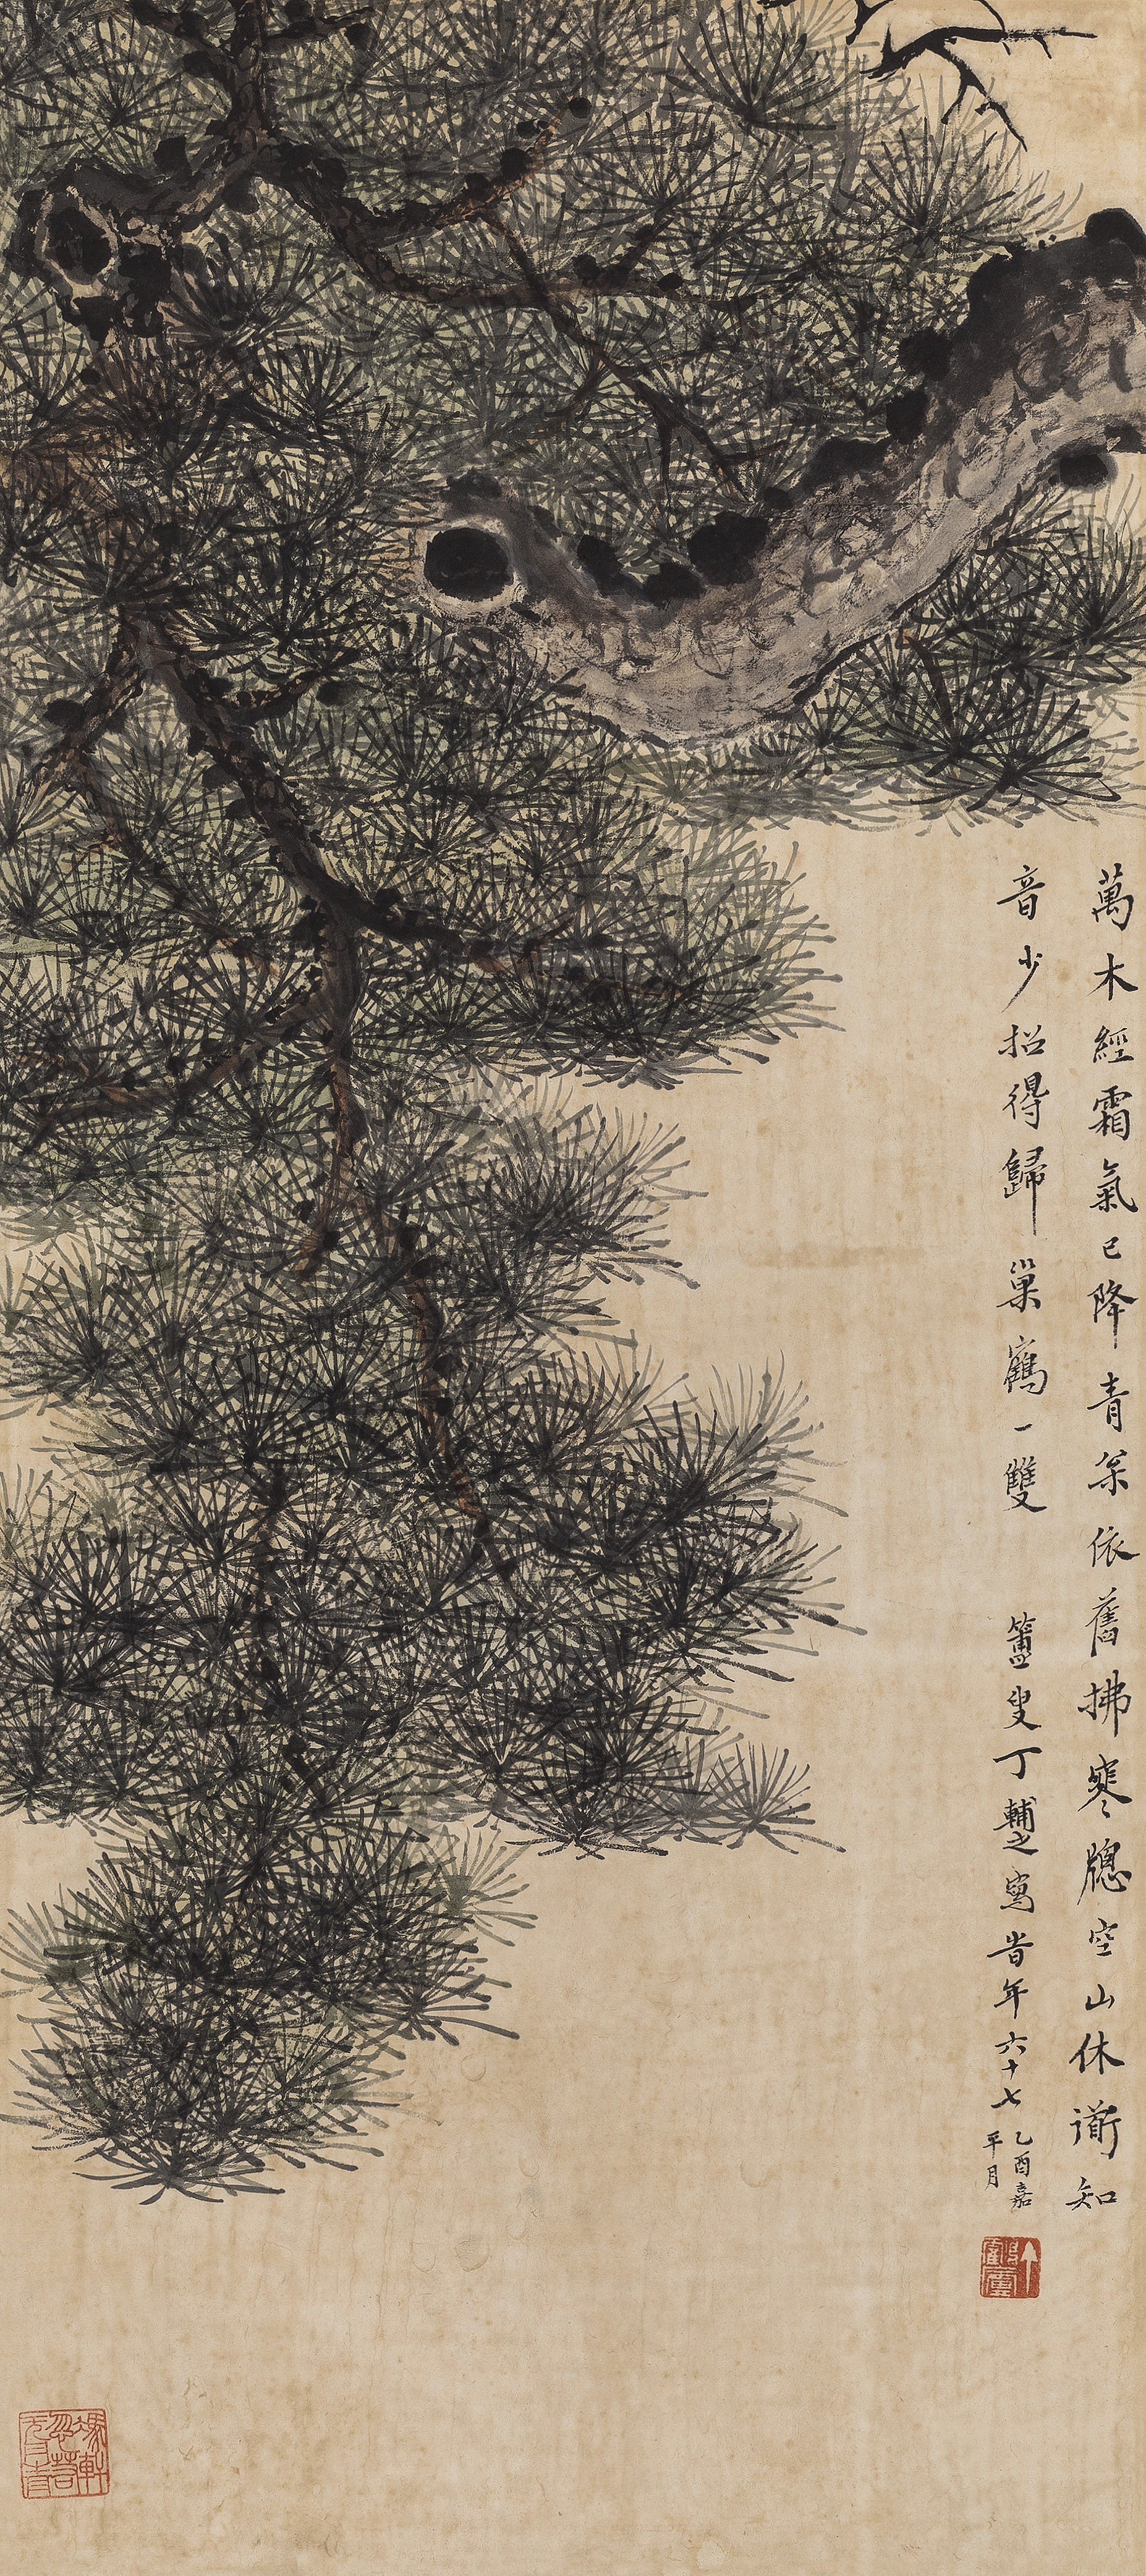 萬木經霜氣已降青參依舊拂寒牕空山休道知
音少招得歸巢鶴一雙 簠叟丁輔之寫岢年六十七
乙酉嘉
平月